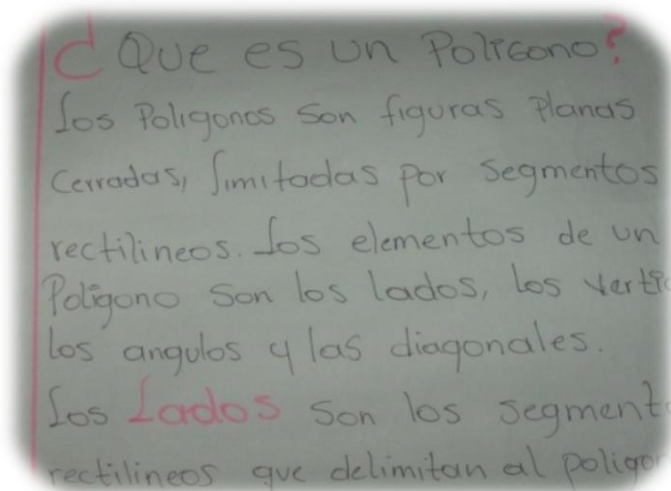 ¿Que es un Poligono?
Los Poligonos son figuras Planas
Cerradas, limitadas por segmentos
rectilineos. Los elementos de un
Poligono son los lados, los verti
los angulos y las diagonales.
Los Lados son los segment
rectilineos que delimitan al poligo